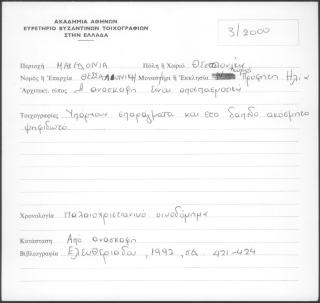 ΑΚΑΔΗΜΙΑ ΑΘΗΝΩΝ
ΕΥΡΕΤΗΡΙΟ ΒΥΖΑΝΤΙΝΩΝ ΤΟΙΧΟΓΡΑΦΙΩΝ
ΣΤΗΝ ΕΛΛΑΔΑ
3/2000
Περιοχή ΜΑΚΕΔΟΝΙΑ Πόλη ή Χωριό Θεσσαλονίκη
Νομός ή Ἐπαρχία ΘΕΣΣΑΛΟΝΙΚΗ Μοναστήρι ή Ἐκκλησία Προφήτη Ηλία
Ἀρχιτεκτ. τύπος Η ανασκαφή είναι αποσπασματική
Τοιχογραφίες Υπάρχουν σπαράγματα και στο δάπεδο ακόσμητο
ψηφιδωτό
Χρονολογία Παλαιοχριστιανικό οικοδόμημα
Κατάσταση Από ανασκαφή
Βιβλιογραφία Ελευθεριάδου, 1992, σ. 421-424